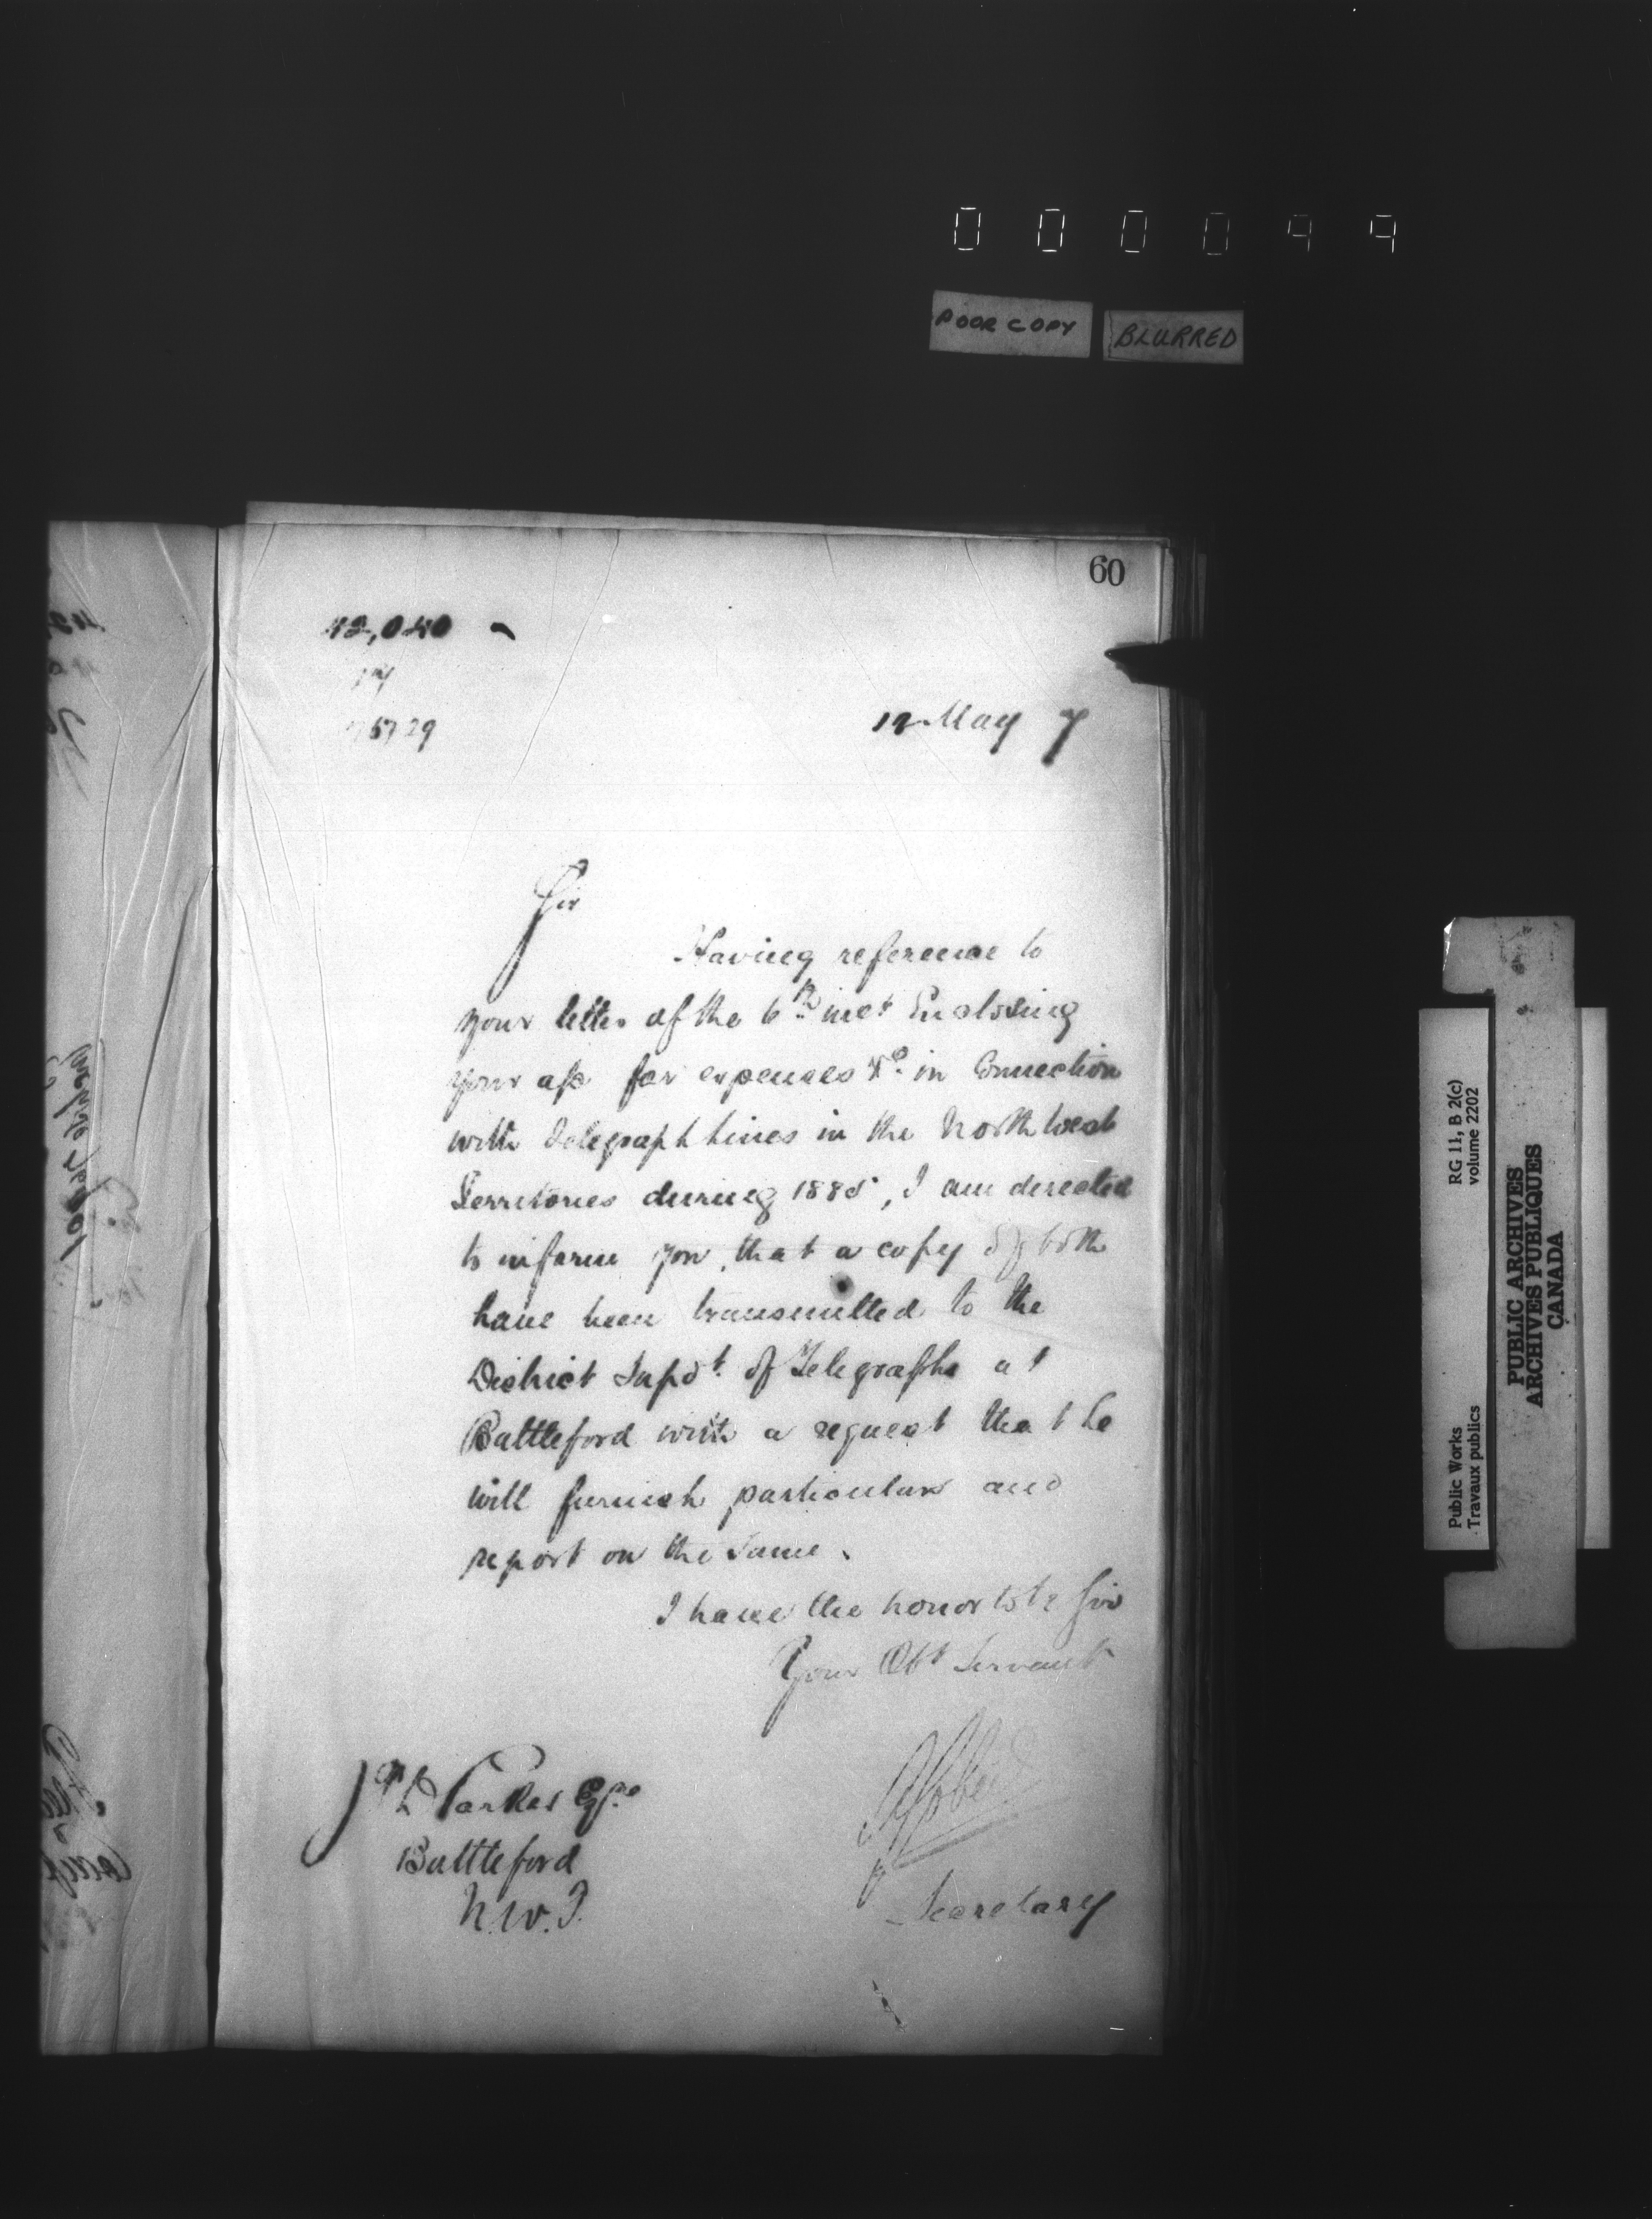 000099
POOR COPY BLURRED
60
42,040
17
5729
12 May 7
Sir
Having reference to
your letter of the 6th inst Enclosing
your a/c for expenses &c. in Connection
with Telegraph lines in the North West
Territories during 1885, I am directed
to inform you, that a copy of both
have been transmitted to the
District Supdt. of Telegraphs at
Battleford with a request that he
will furnish particulars and
report on the same.
I have the honor to be Sir
Your Obt Servant
Secretary
Parker Esqre
Battleford
N.W.T.
Public Works
Travaux publics
RG 11, B 2(c)
volume 2202
PUBLIC ARCHIVES
ARCHIVES PUBLIQUES
CANADA